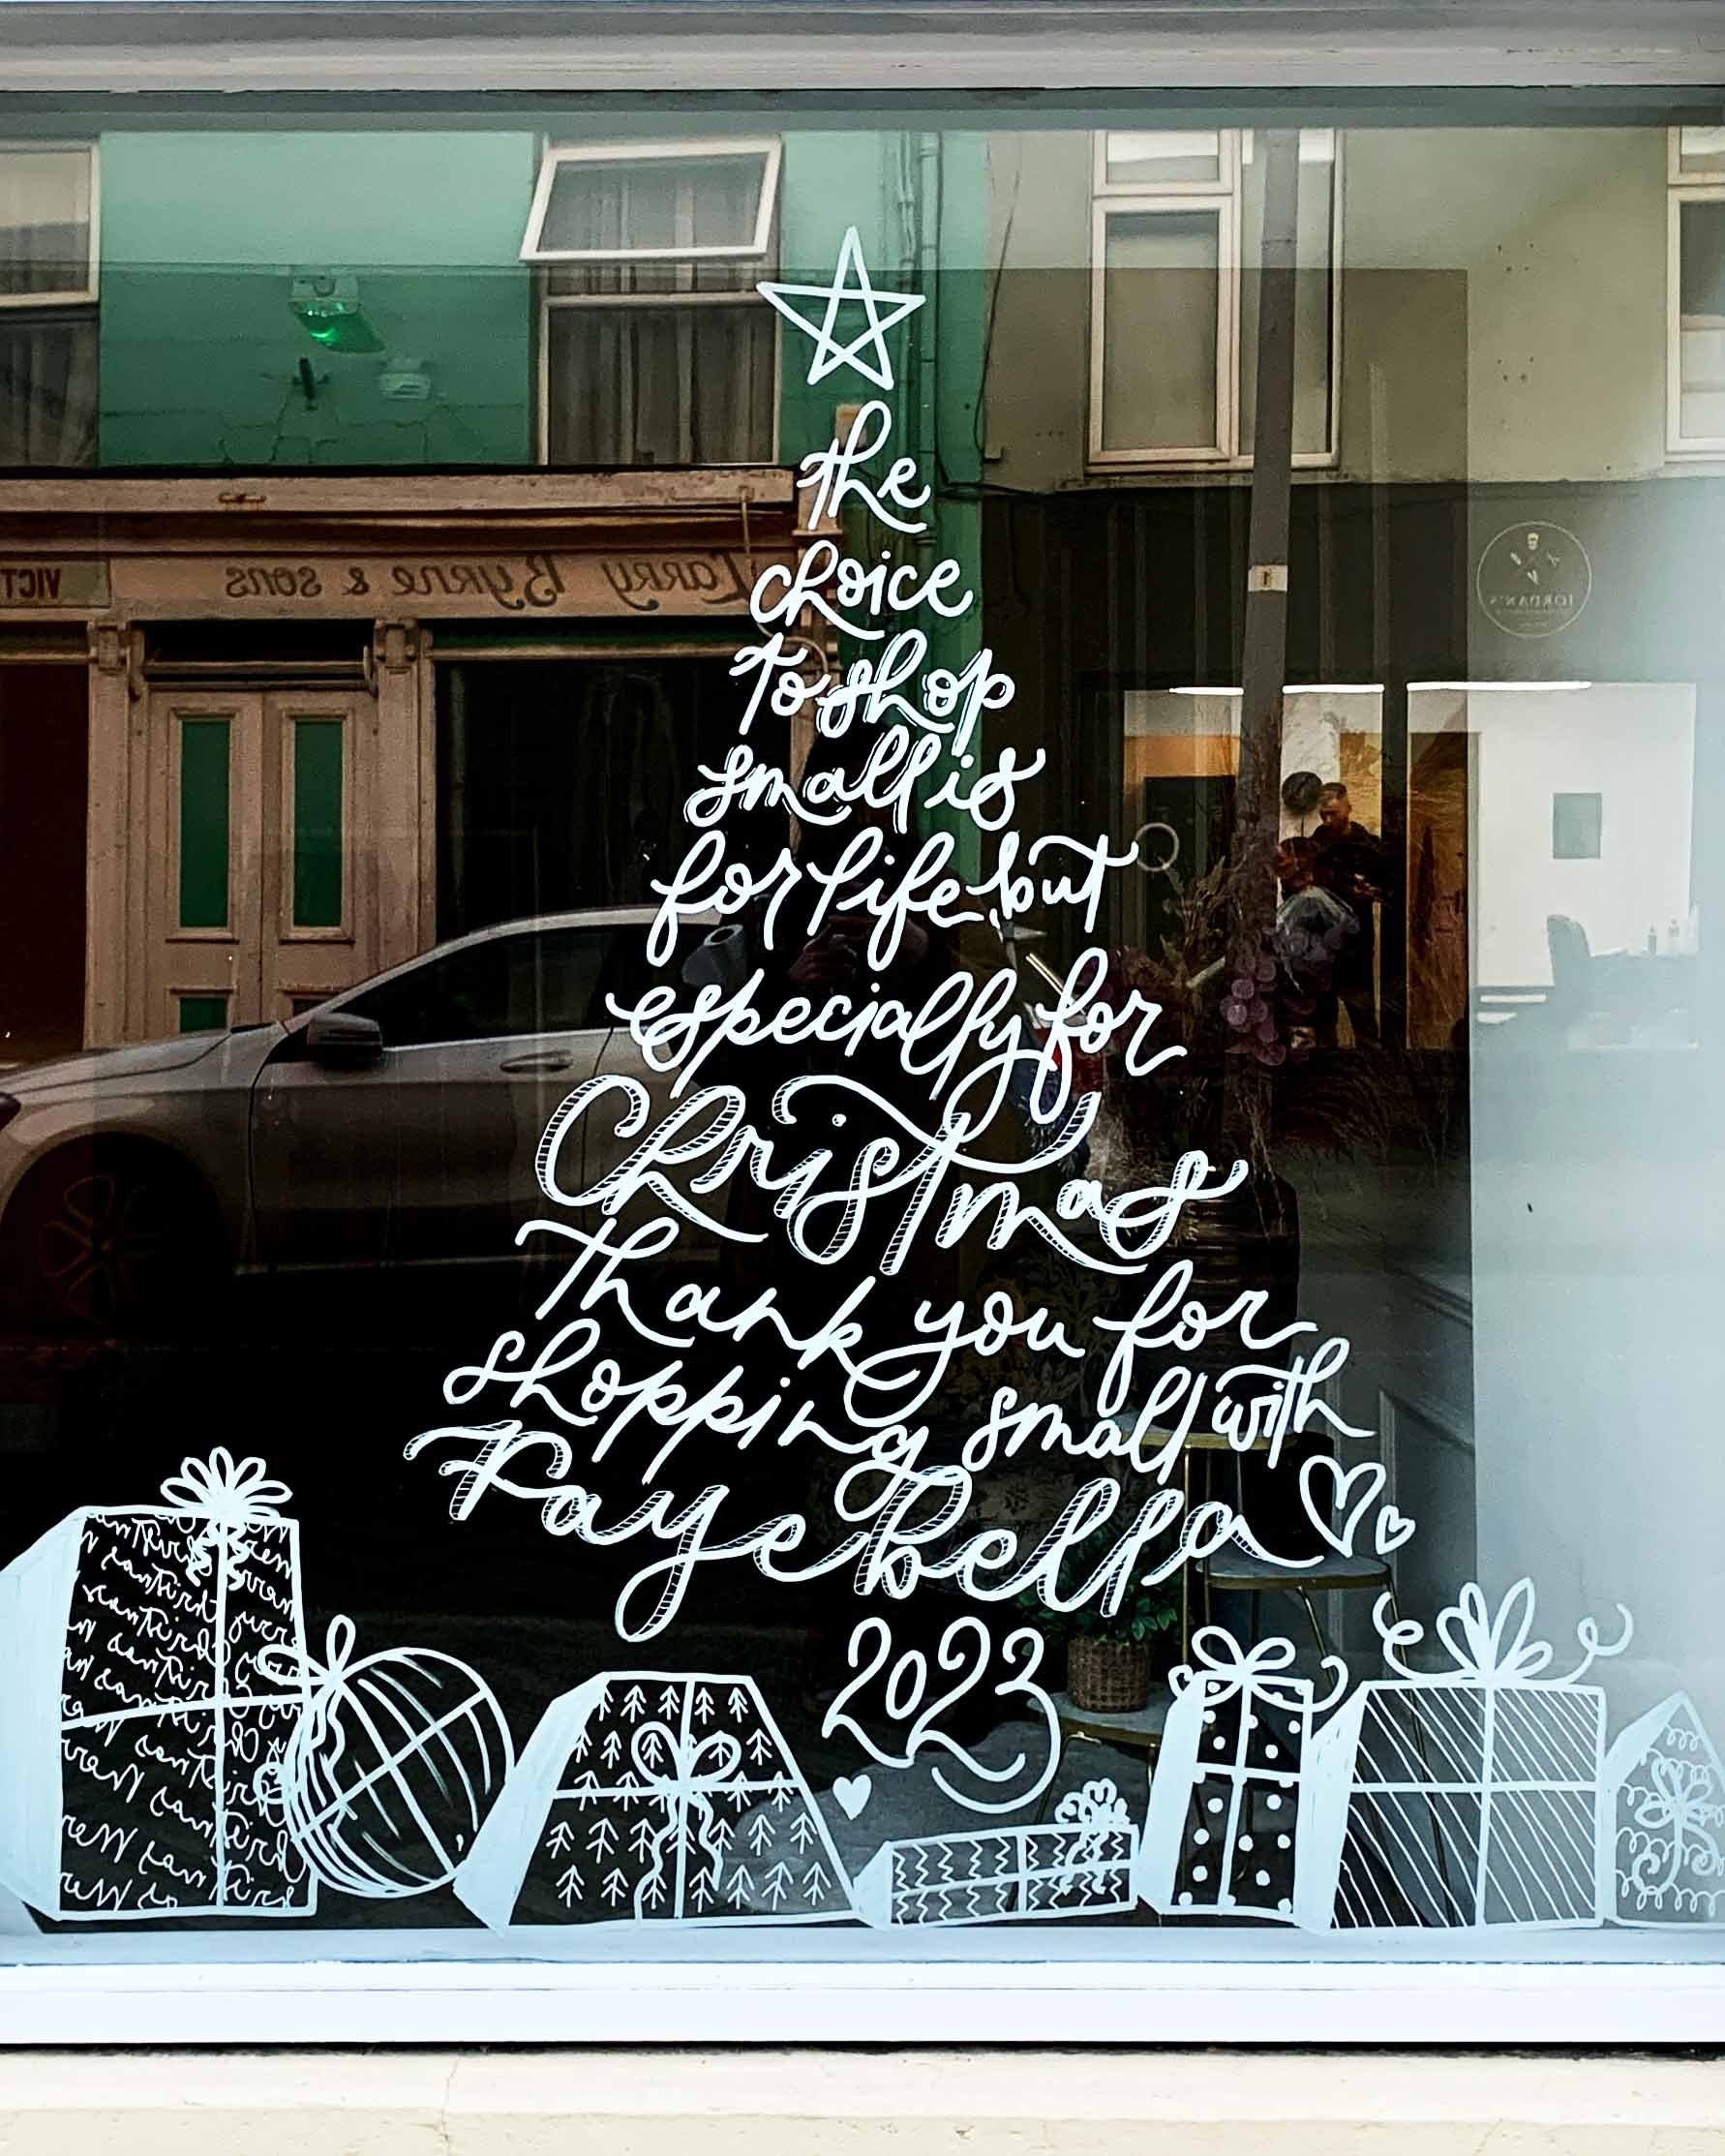 the
choice
to shop
small is
for life, but
especially for
Christmas
Thank you for
shopping small with
Faye Bella
2023
VICT
Larry Byrne & sons
JORDAN'S